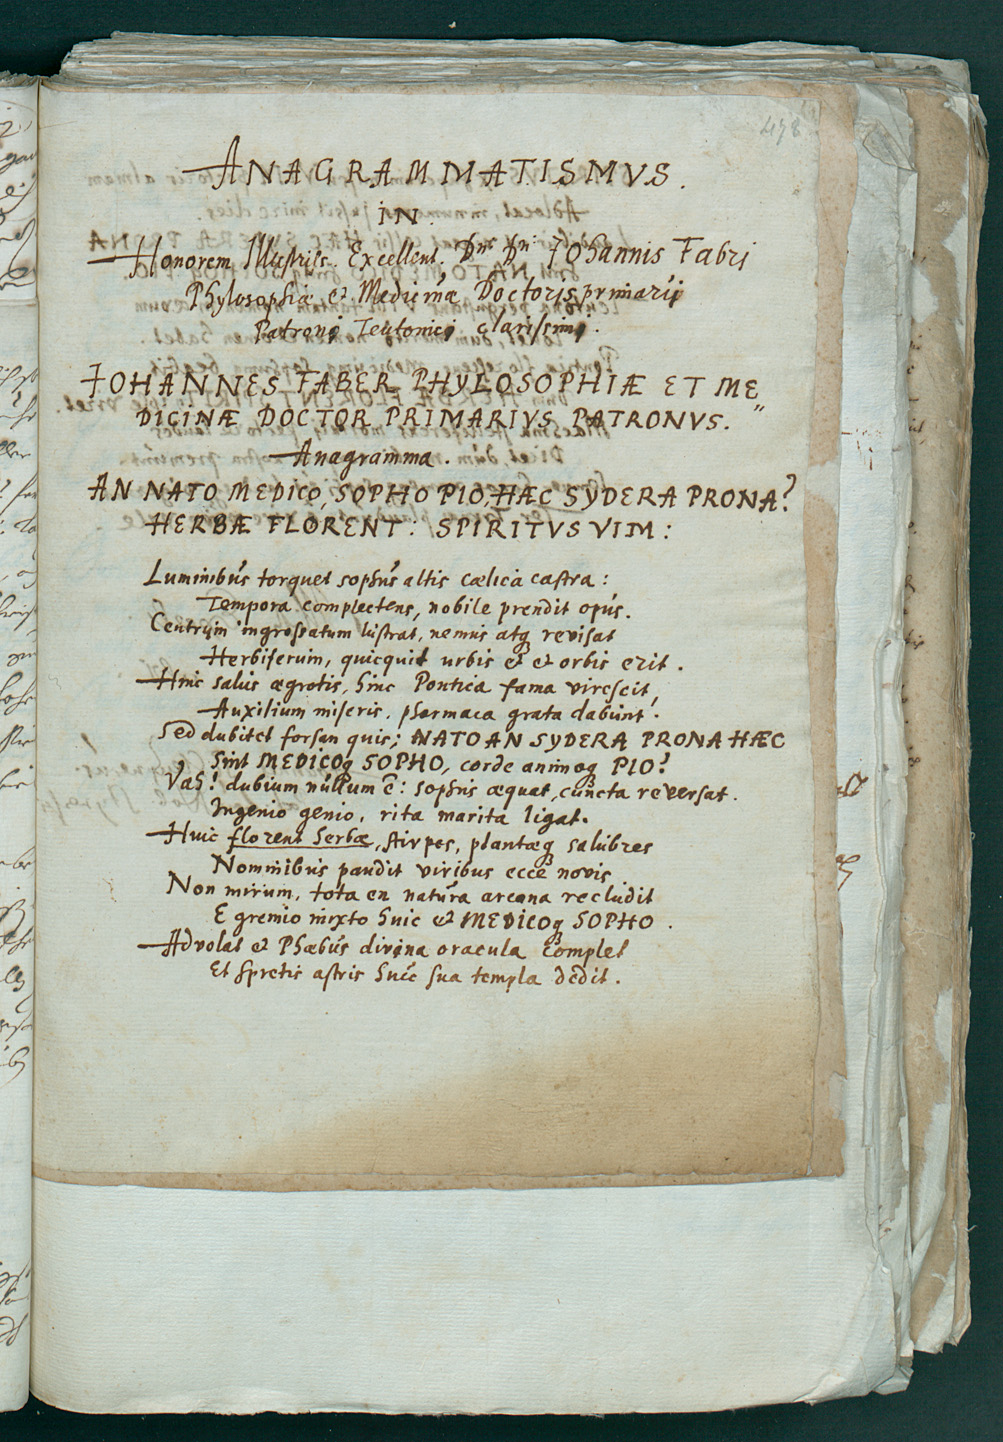 478
ANAGRAMMATISMVS.
IN
Honorem Illustris. Excellent. Dni Dni: JOhannis Fabri
Phylosophiæ et Medicinæ Doctoris primarij
Patronj Teutonicj clarissimj.
JOHANNES FABER PHYLOSOPHIÆ ET ME
DICINÆ DOCTOR PRIMARIVS PATRONVS.
Anagramma.
AN NATO MEDICO, SOPHO PIO, HÆC SYDERA PRONA?
HERBÆ FLORENT: SPIRITVS VIM:
Luminibus torquet sophus altis cælica castra:
Tempora complectens, nobile prendit opus.
Centrum ingrospatum lustrat, nemus atq revisat
Herbiferum, quicquid urbis et et orbis erit.
Hinc salus ægrotis, hinc Pontica fama virescit,
Auxilium miseris, pharmaca grata dabunt.
Sed dubitet forsan quis; NATO AN SYDERA PRONA HÆC
Sint MEDICOq SOPHO, corde animoq PIO?
Vah! dubium nullum ē: sophus æquat, cuncta reversat.
Ingenio genio, rita marita ligat.
Huic florent herbæ, stirpes, plantæq salubres
Nominibus pandit viribus ecce novis.
Non mirum, tota en natura arcana recludit
E gremio mixto huic et MEDICOq SOPHO.
Advolat et Phæbus divina oracula complet
Et spretis astris huic sua templa dedit.